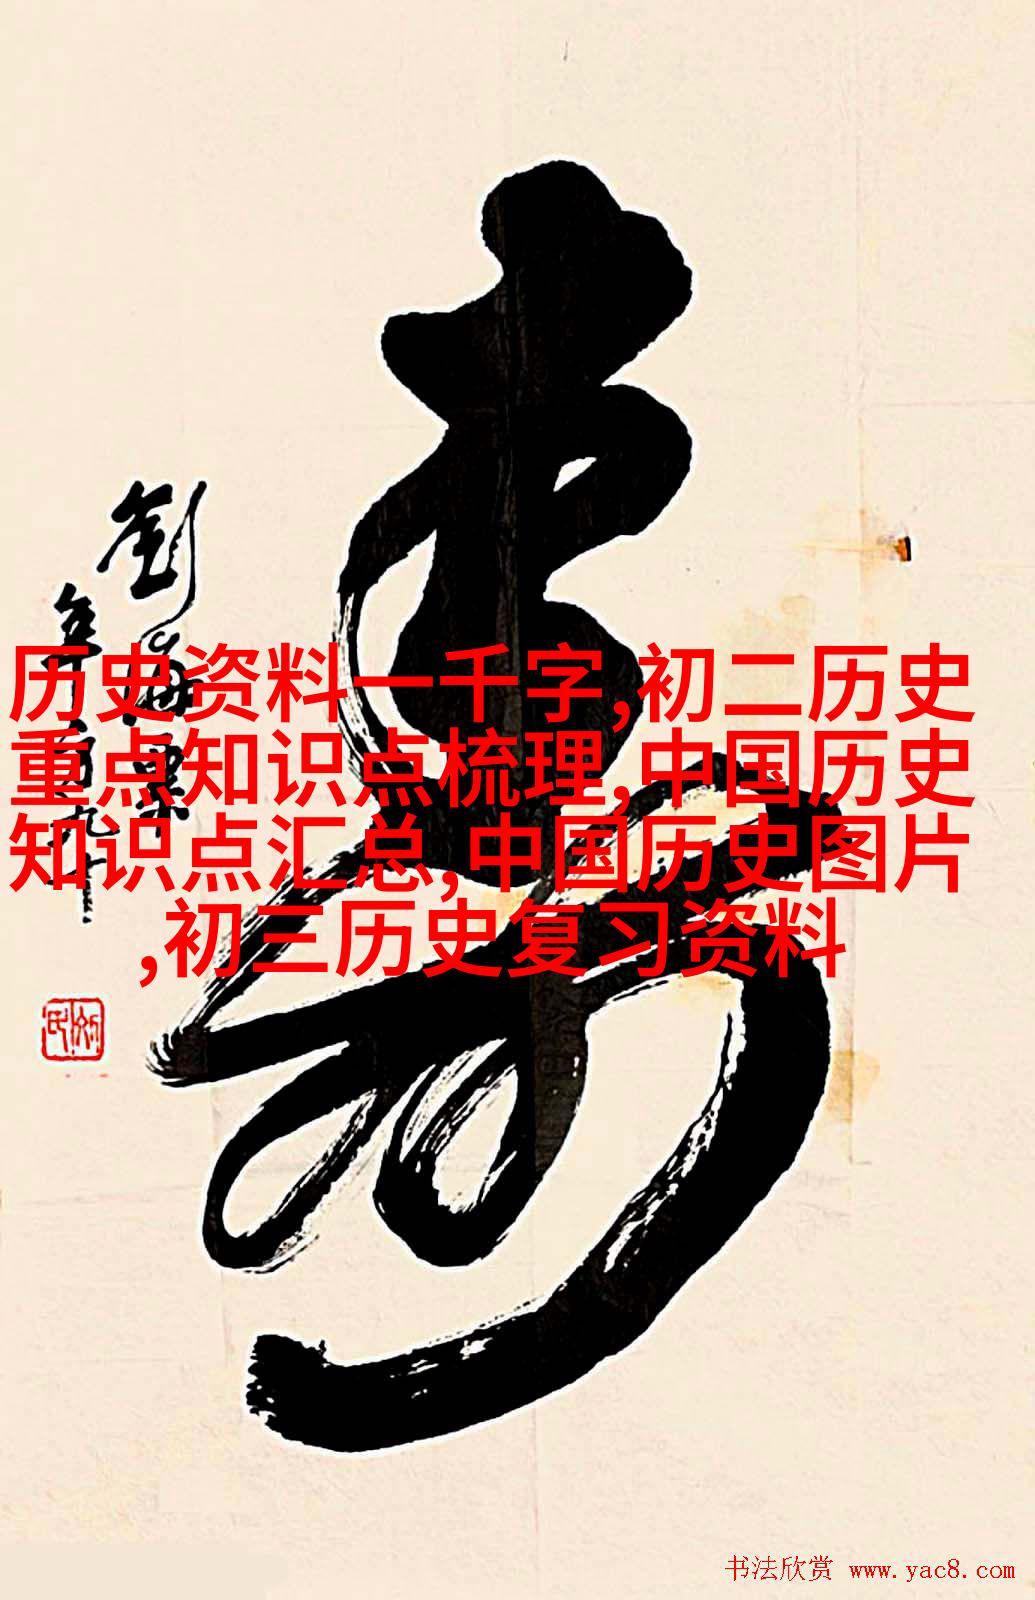 寿
劉海粟
年方九十
历史资料一千字,初二历史
重点知识点梳理,中国历史
知识点汇总,中国历史图片
,初三历史复习资料
书法欣赏 www.yac8.com